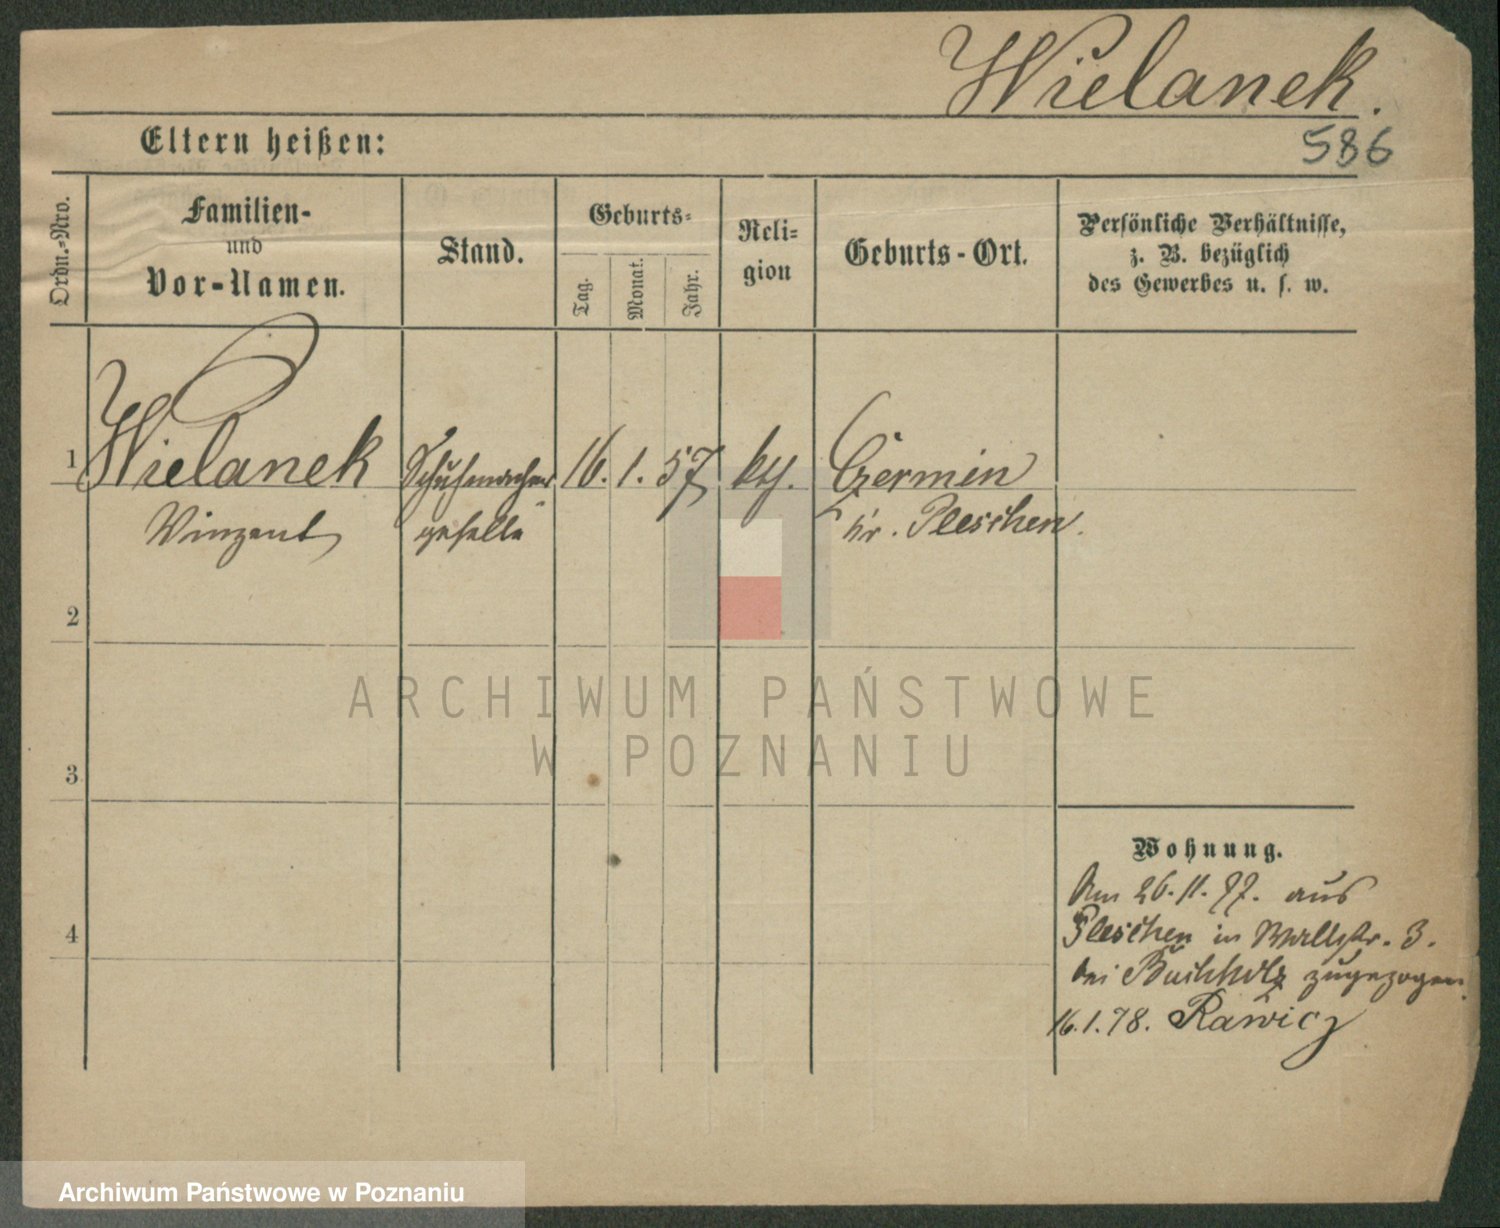 Wielanek.
586
Eltern heißen:
Ordn.-Nro.
Familien-
und
Vor-Namen.
Stand.
Geburts-
Tag.
Monat.
Jahr.
Reli-
gion
Geburts-Ort.
Persönliche Verhältnisse,
z. B. bezüglich
des Gewerbes u. s. w.
1 Wielanek Schuhmacher 16. 1. 57 kth. Czermin
Vinzent geselle Kr. Pleschen.
2
3
4
Wohnung.
Am 26.11.77. aus
Pleschen in Wallstr. 3.
bei Buchholz zugezogen
16.1.78. Rawicz
ARCHIWUM PAŃSTWOWE
W POZNANIU
Archiwum Państwowe w Poznaniu